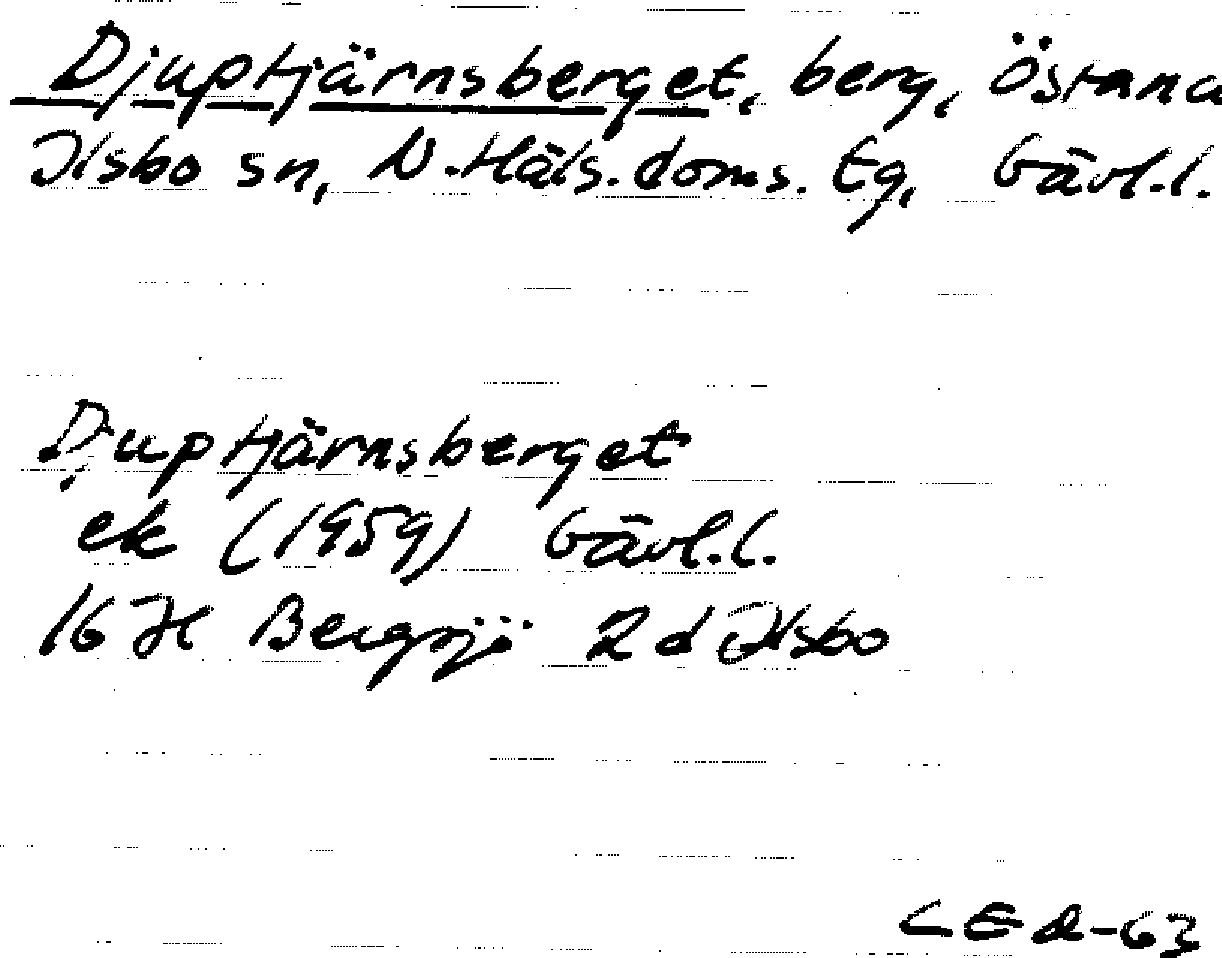 Djuptjärnsberget, berg, Östana
Ilsbo sn, N.Häls.doms. tg, Gävl.l.
Djuptjärnsberget
ek (1959) Gävl.l.
16 H Bergsjö 2 d Ilsbo
CEA-63